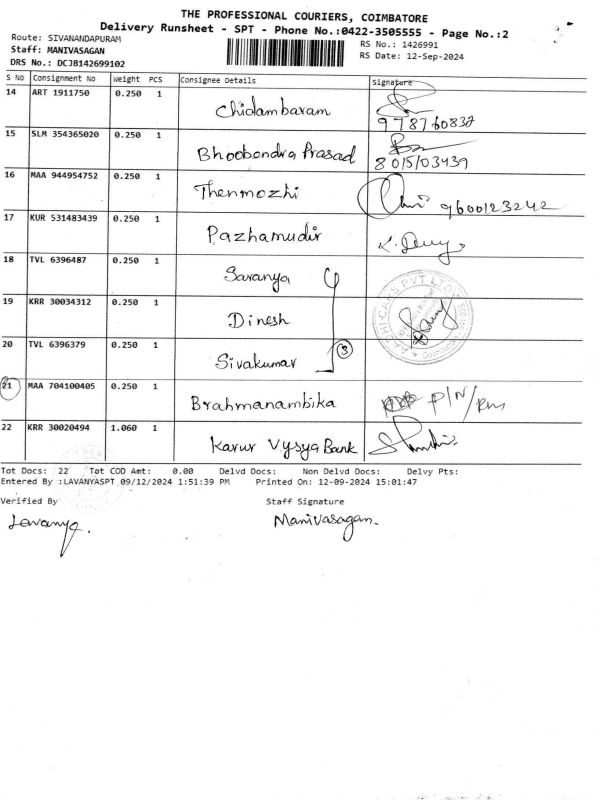 THE PROFESSIONAL COURIERS, COIMBATORE
Delivery Runsheet - SPT - Phone No.:0422-3505555 - Page No.:2
Route: SIVANANDAPURAM
Staff: MANIVASAGAN
DRS No.: DCJB142699102
RS No.: 1426991
RS Date: 12-Sep-2024
S No Consignment No Weight PCS Consignee Details Signature
14 ART 1911750 0.250 1 Chidambaram
15 SLM 354365020 0.250 1 Bhoobendra Prasad 8015103439
16 MAA 944954752 0.250 1 Thenmozhi 9600123242
17 KUR 531483439 0.250 1 Pazhamudir
18 TVL 6396487 0.250 1 Saranya
19 KRR 30034312 0.250 1 Dinesh
20 TVL 6396379 0.250 1 Sivakumar 3
21 MAA 704100405 0.250 1 Brahmanambika
22 KRR 30020494 1.060 1 Karur Vysya Bank
Tot Docs: 22 Tot COD Amt: 0.00 Delvd Docs: Non Delvd Docs: Delvy Pts:
Entered By :LAVANYASPT 09/12/2024 1:51:39 PM Printed On: 12-09-2024 15:01:47
Verified By Staff Signature
Lavanya. Manivasagan.